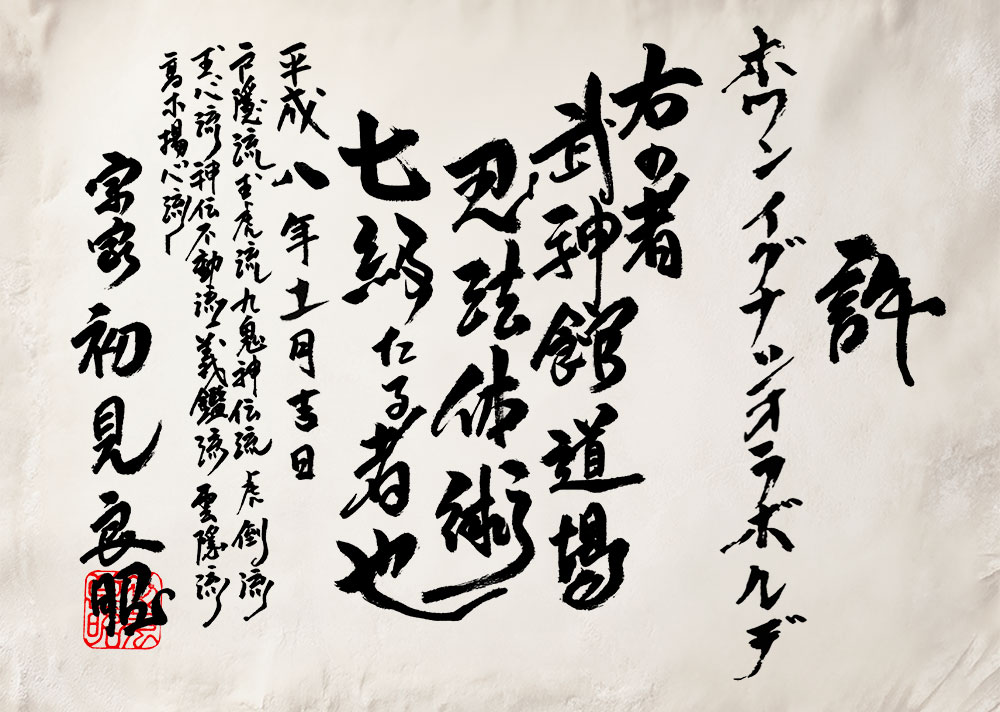 許
ホワン イグナッシオラボルデ
右の者
武神館道場
忍法体術
七級たる者也
平成八年十一月吉日
戸隠流 玉虎流 九鬼神伝流 虎倒流
玉心流 神伝不動流 義鑑流 雲隠流
高木揚心流
宗家 初見良昭